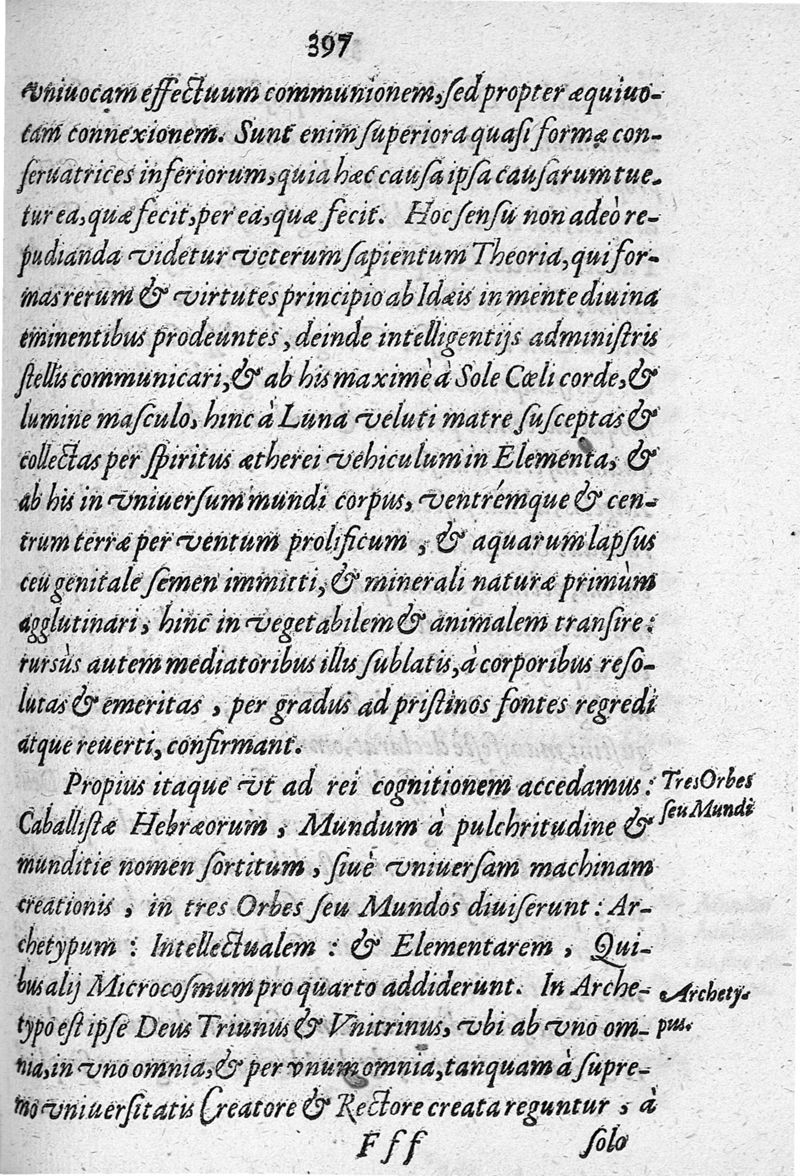 397
vniuocam effectuum communionem, sed propter æquiuo-
cam connexionem. Sunt enim superiora quasi formæ con-
seruatrices inferiorum, quia hæc causa ipsa causarum tue-
tur ea, quæ fecit, per ea, quæ fecit. Hoc sensu non adeò re-
pudianda videtur veterum sapientum Theoria, qui for-
mas rerum & virtutes principio ab Idæis in mente diuina
eminentibus prodeuntes, deinde intelligentijs administris
stellis communicari, & ab his maximè à Sole Cœli corde, &
lumine masculo, hinc à Luna veluti matre susceptas &
collectas per spiritus ætherei vehiculum in Elementa, &
ab his in vniuersum mundi corpus, ventrémque & cen-
trum terræ per ventum prolificum, & aquarum lapsus
ceu genitale semen immitti, & minerali naturæ primùm
agglutinari, hinc in vegetabilem & animalem transire:
rursùs autem mediatoribus illis sublatis, à corporibus reso-
lutas & emeritas, per gradus ad pristinos fontes regredi
atque reuerti, confirmant.
Propius itaque vt ad rei cognitionem accedamus: Tres Orbes
Caballistæ Hebræorum, Mundum à pulchritudine & seu Mundi
munditie nomen sortitum, siuè vniuersam machinam
creationis, in tres Orbes seu Mundos diuiserunt: Ar-
chetypum: Intellectualem: & Elementarem, Qui-
bus alij Microcosmum pro quarto addiderunt. In Arche- Archety-
typo est ipse Deus Triunus & Vnitrinus, vbi ab vno om- pus.
nia, in vno omnia, & per vnum omnia, tanquam à supre-
mo vniuersitatis Creatore & Rectore creata reguntur, à
Fff solo